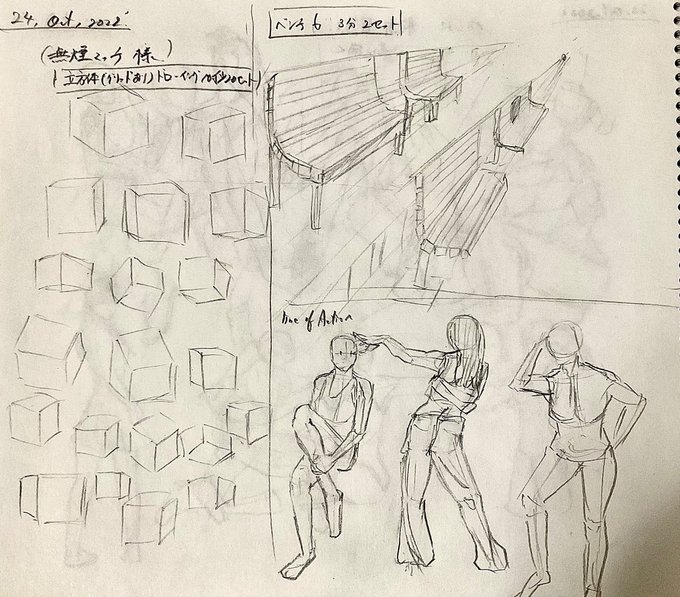 24, Oct, 2022
(無煙ミッチ 様)
立方体(ガイドあり)ドローイング 20セット
ベンチ6 3分2セット
line of Action